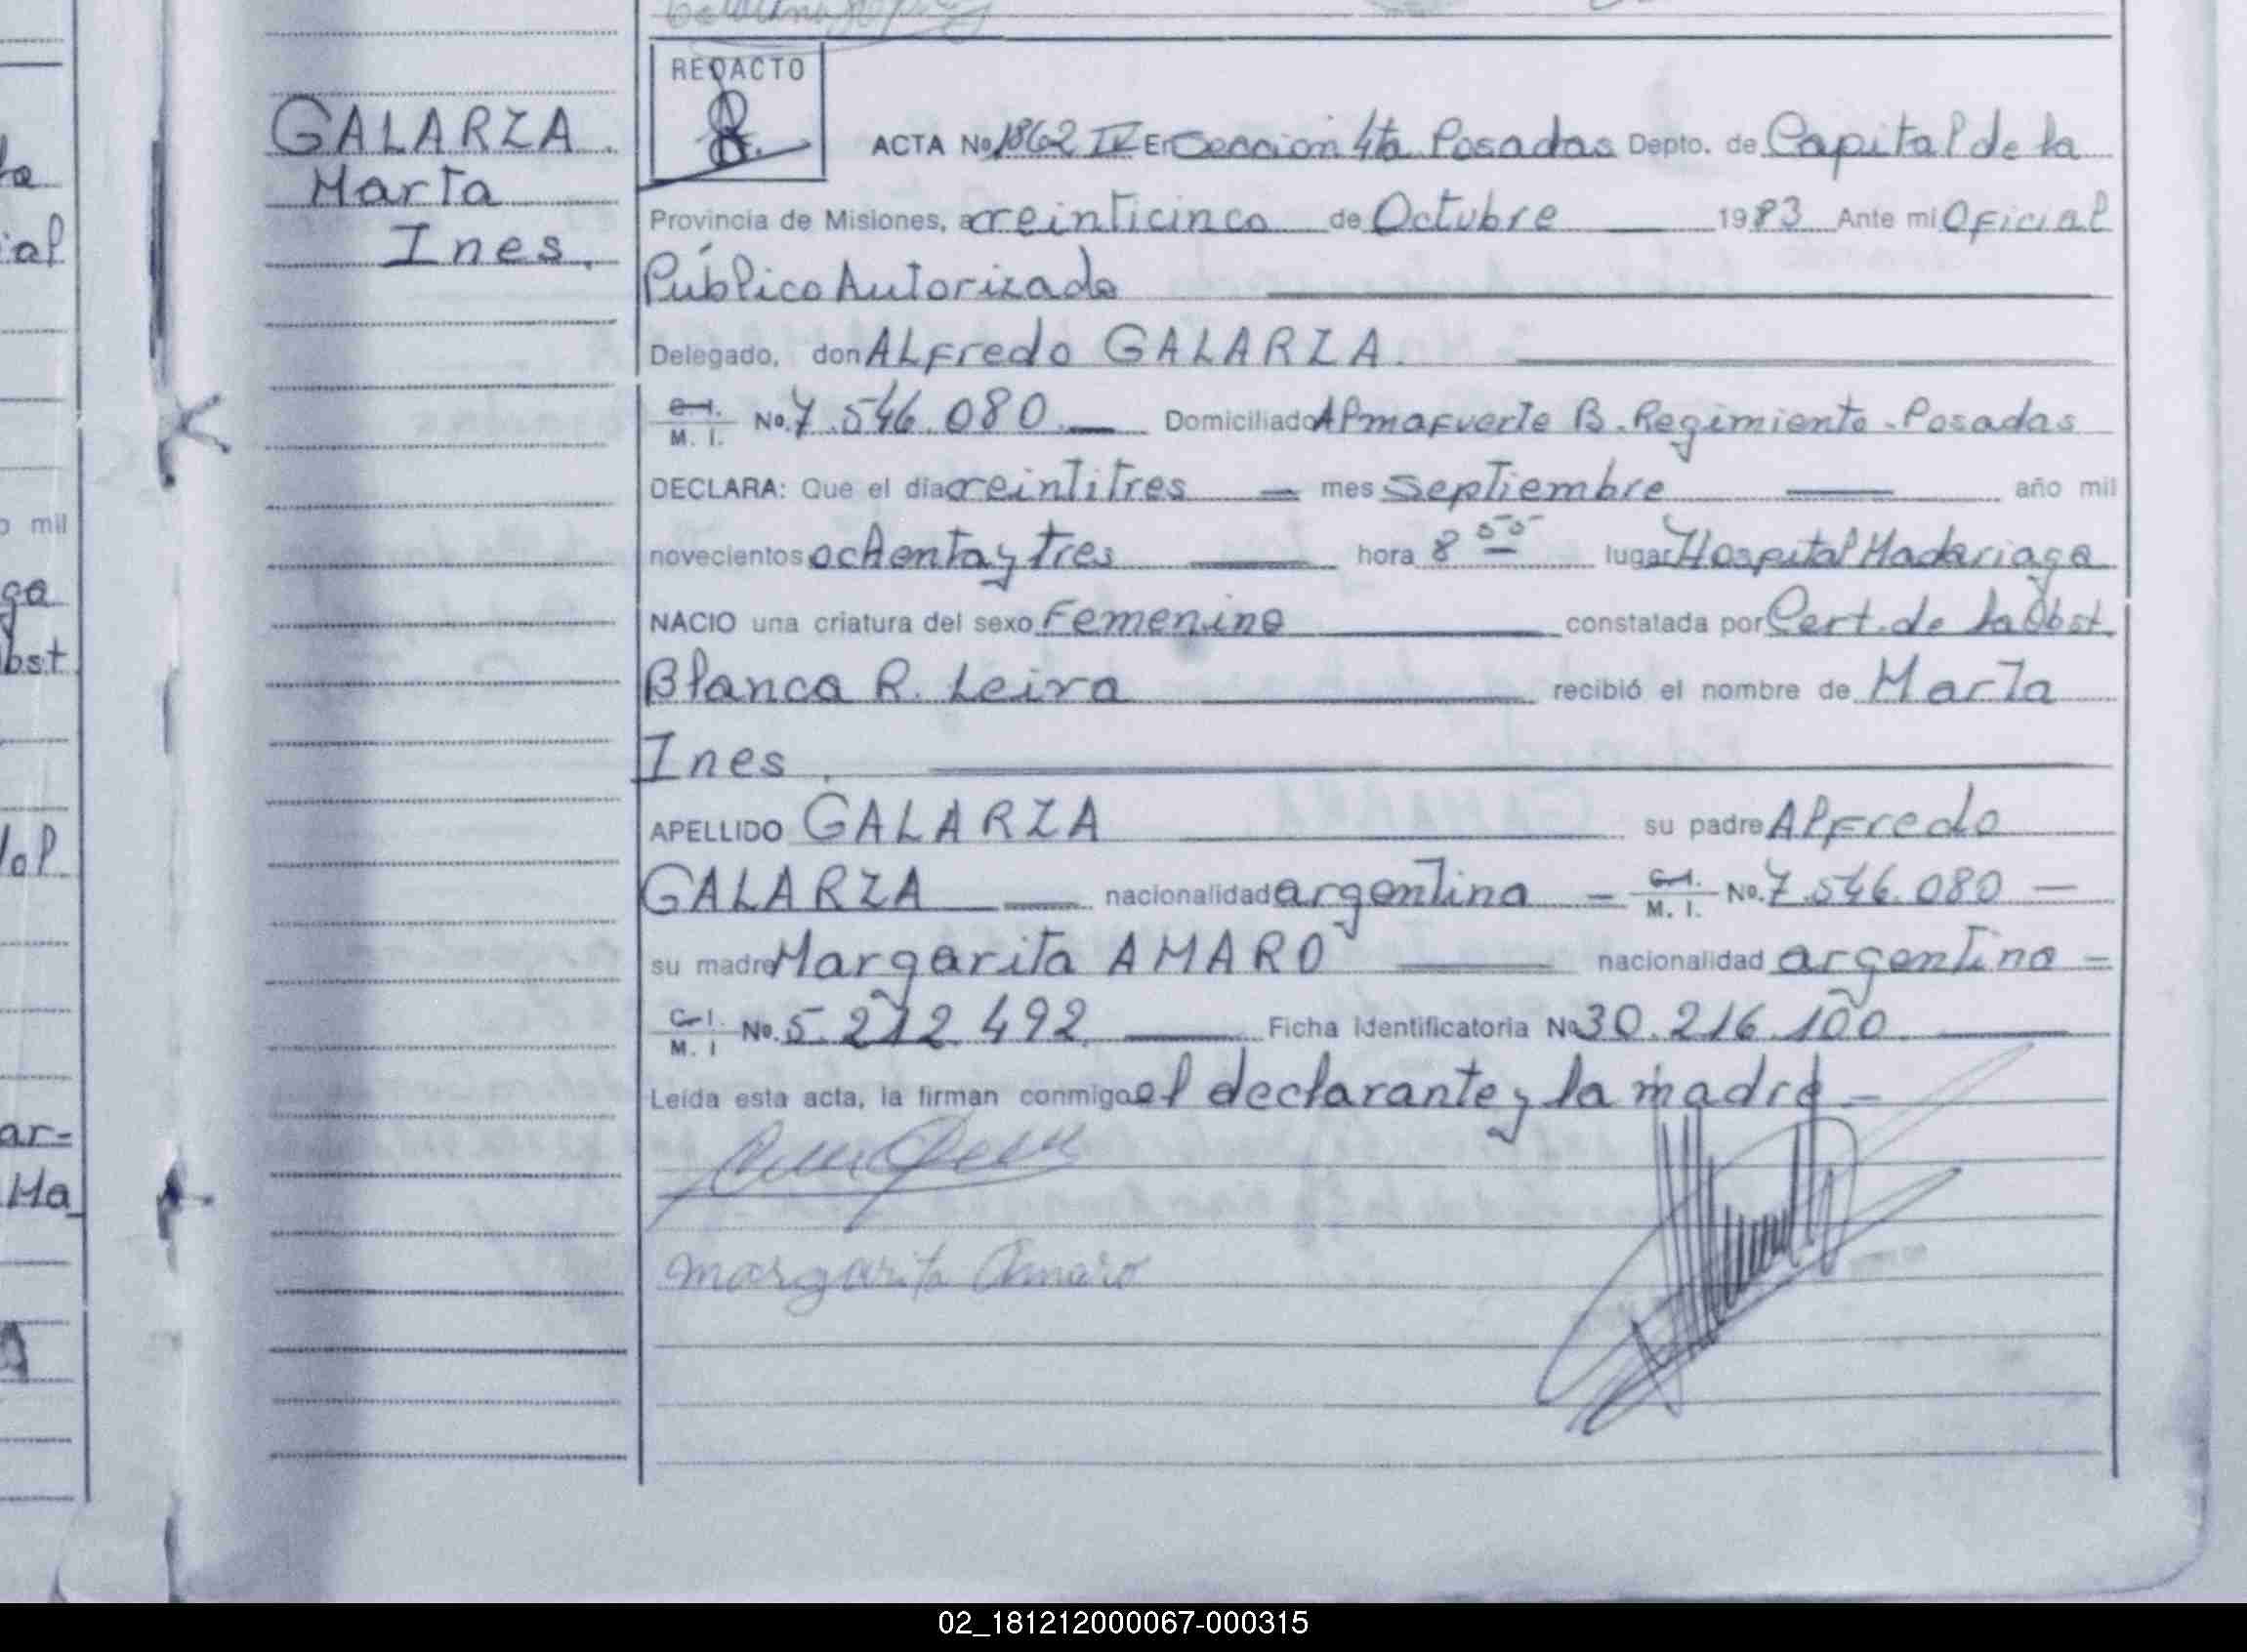 GALARZA.
Marta
Ines.
REDACTO
ACTA No 1862 IV En Sección 4ta Posadas Depto. de Capital de la
Provincia de Misiones, a veinticinco de Octubre 1983 Ante mi Oficial
Público Autorizado
Delegado, don ALFredo GALARZA.
C.I. M. I. No. 7.546.080 Domiciliado Almafuerte B. Regimiento - Posadas
DECLARA: Que el día veintitres mes septiembre año mil
novecientos ochenta y tres hora 8 55 lugar Hospital Madariaga
NACIO una criatura del sexo Femenino constatada por Cert. de la Obst.
Blanca R. Leiva recibió el nombre de Marta
Ines.
APELLIDO GALARZA su padre Alfredo
GALARZA nacionalidad argentina C.I. M. I. No. 7.546.080
su madre Margarita AMARO nacionalidad argentina
C.I. M. I No. 5.212.492 Ficha identificatoria No 30.216.100
Leída esta acta, la firman conmigo el declarante y la madre
margarita Amaro
o mil
ga
bst.
ar-
Ma
02_181212000067-000315